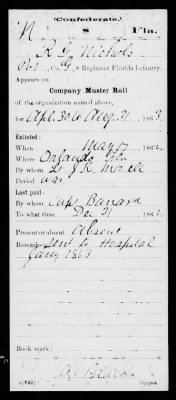 (Confederate.)
N 8 Fla.
R. G. Nichols
Pvt, Co. G, 8 Regiment Florida Infantry.
Appears on
Company Muster Roll
of the organization named above,
for Apl. 30 to Aug 31, 1863.
Enlisted:
When May 17, 1862
Where Orlando Fla
By whom Lt J. R.
Period war
Last paid:
By whom Capt
To what time Dec 31, 1862.
Present or absent Absent
Remarks: Sent to Hospital
Jany 1863
Book mark:
(642) Copyist.